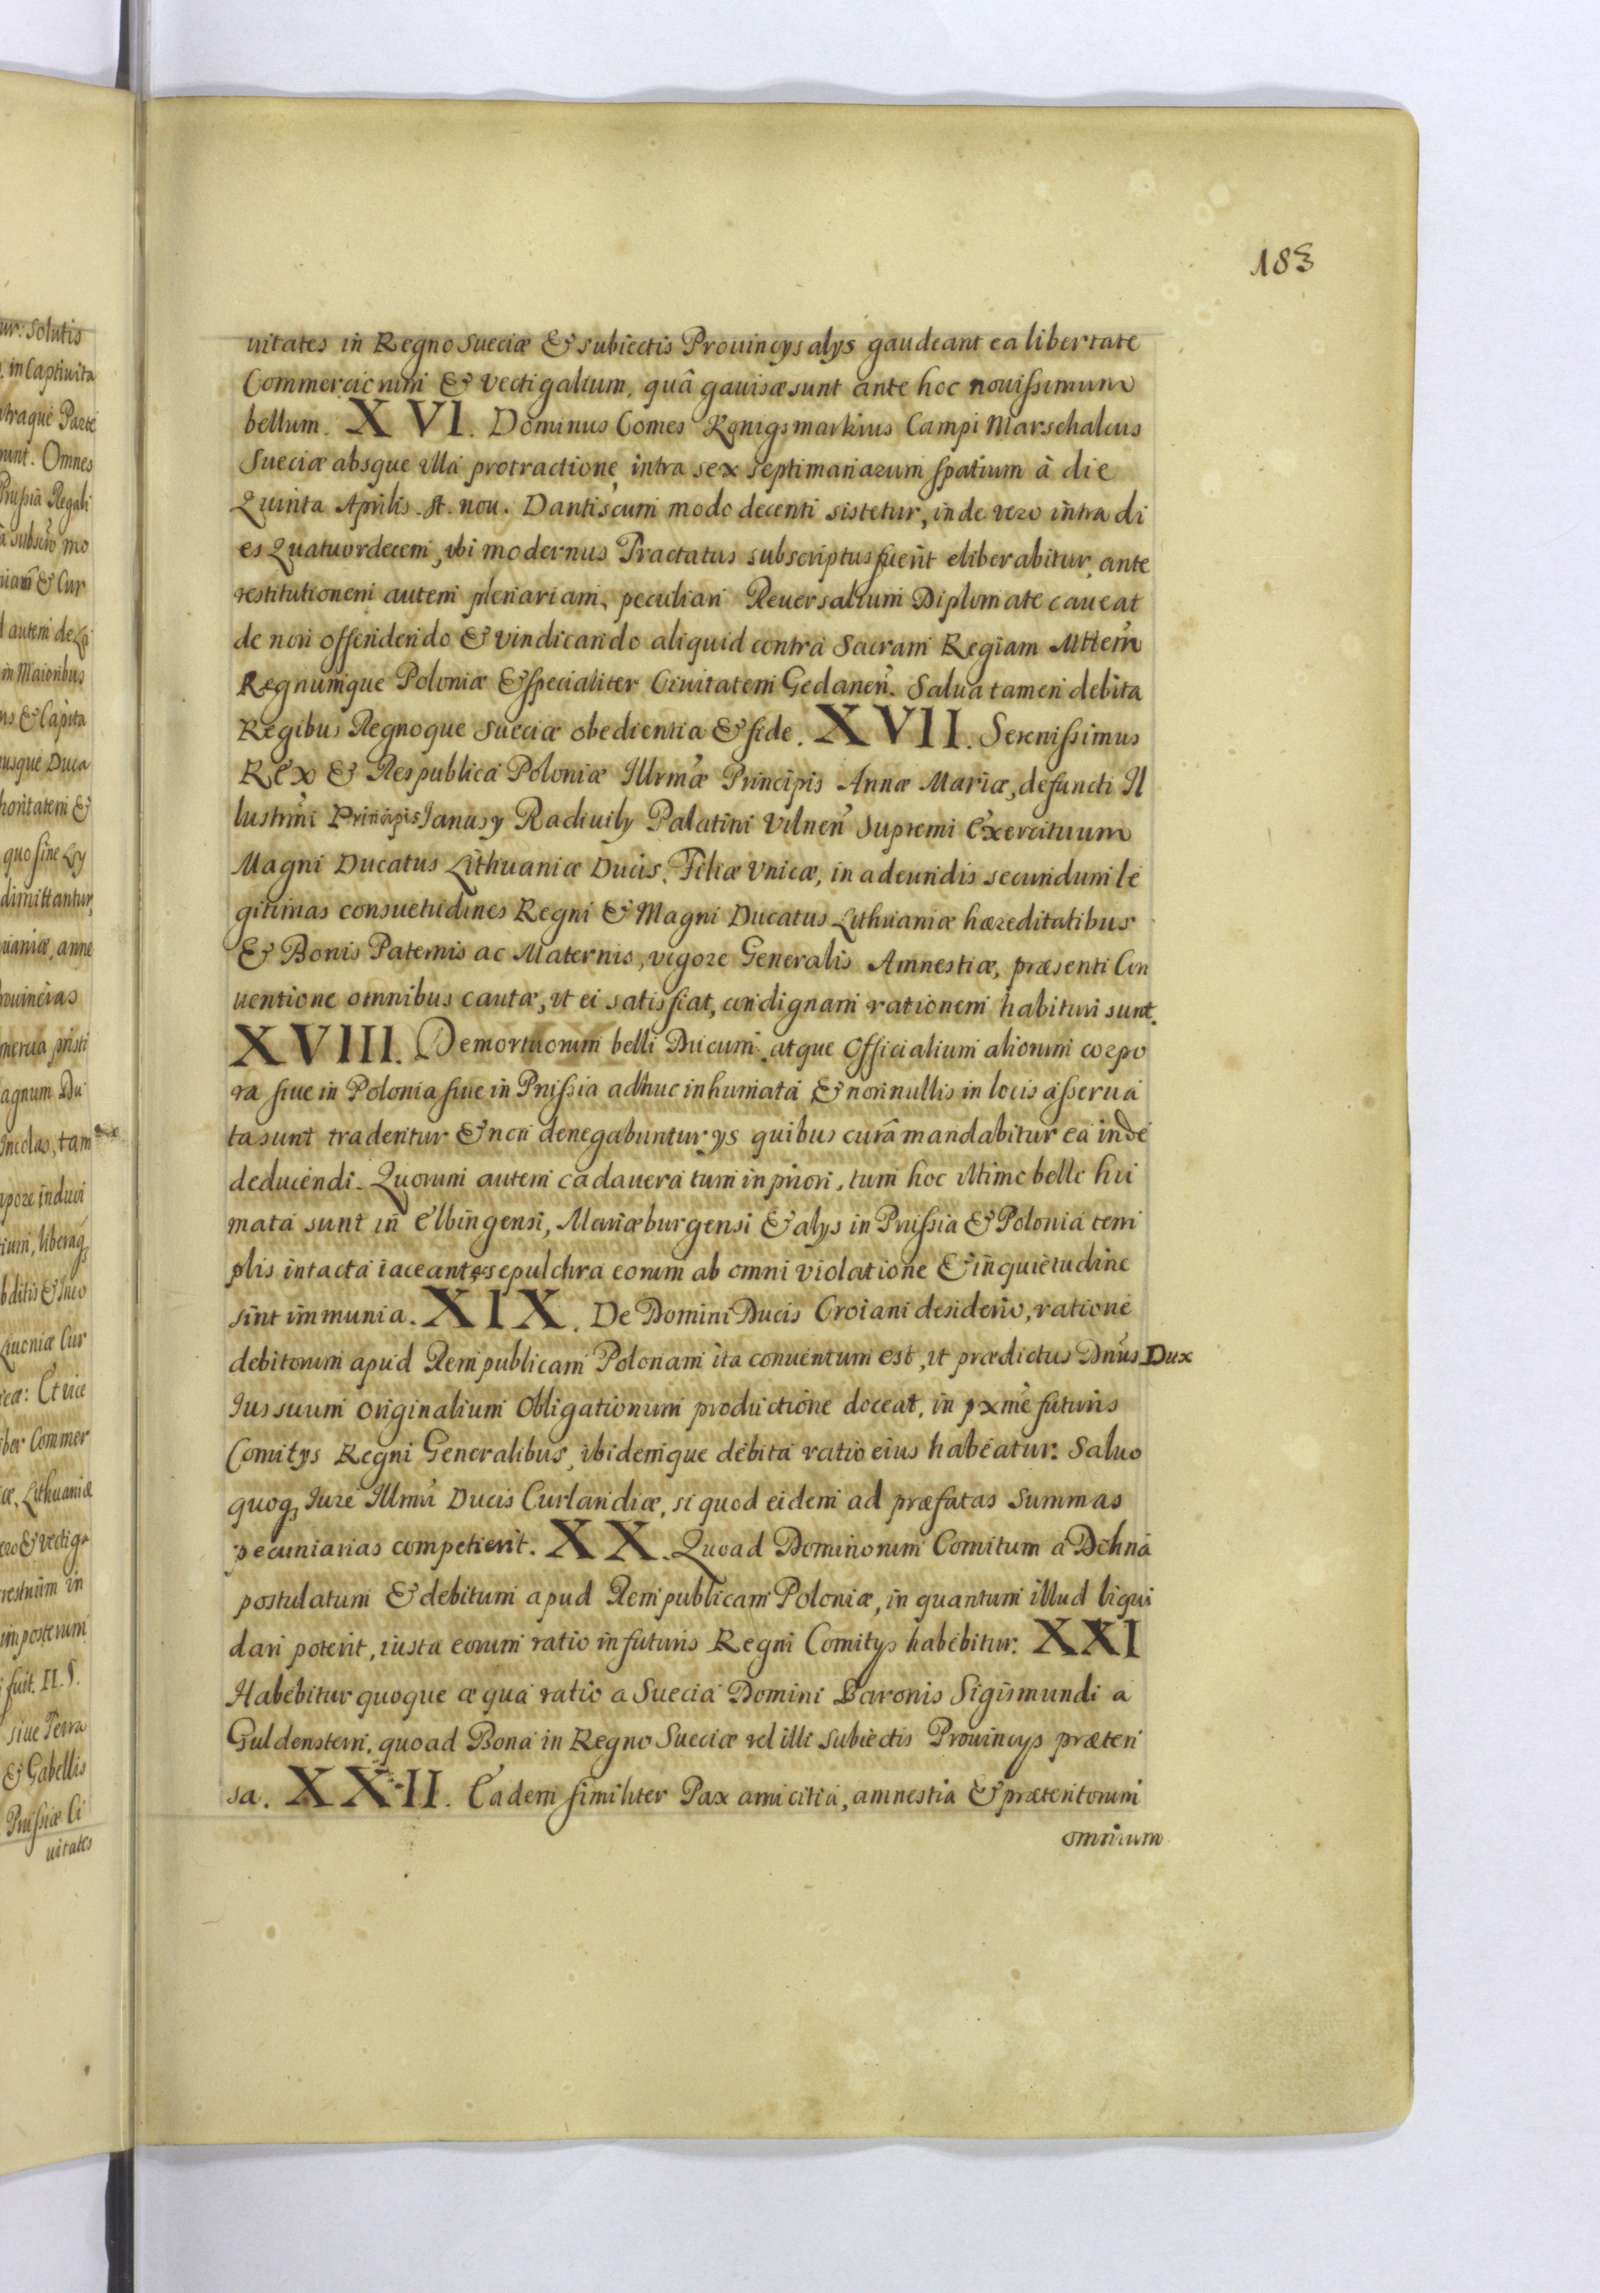 183
uitates in Regno Sueciæ & subiectis Prouincys alys gaudeant ea libertate
Commerciorum & vectigalium, quâ gauisæ sunt ante hoc nouissimum
bellum. XVI. Dominus Comes Konigsmarkius Campi Marschalcus
Sueciæ absque illa protractione intra sex septimanarum spatium à die
Quinta Aprilis st. nou. Dantiscum modo decenti sistetur, inde vero intra di
es Quatuordecem, vbi modernus Tractatus subscriptus fuerit eliberabitur, ante
restitutionem autem plenariam, peculiari Reuersalium Diplomate caueat
de non offendendo & vindicando aliquid contra Sacram Regiam Mttem
Regnumque Poloniæ & specialiter Ciuitatem Gedanen. Salua tamen debita
Regibus Regnoque Sueciæ obedientia & fide. XVII. Serenissimus
Rex & Respublica Poloniæ Illrmæ Principis Annæ Mariæ, defuncti Il
lustrmi Principis Janusy Radiuily Palatini Vilnen Supremi Exercituum
Magni Ducatus Lithuaniæ Ducis, Filiæ Vnicæ, in adeundis secundum le
gitimas consuetudines Regni & Magni Ducatus Lithuaniæ hæreditatibus
& Bonis Paternis ac Maternis, vigore Generalis Amnestiæ, præsenti Con
uentione omnibus cautæ, vt ei satisfiat, condignam rationem habituri sunt.
XVIII. Demortuorum belli Ducum atque Officialium aliorum corpo
ra siue in Polonia siue in Prussia adhuc inhumata & nonnullis in locis asserua
ta sunt tradentur & non denegabuntur ys quibus curâ mandabitur ea inde
deducendi. Quorum autem cadauera tum in priori, tum hoc vltimo bello hu
mata sunt in Elbingensi, Mariæburgensi & alys in Prussia & Polonia tem
plis intacta iaceant & sepulchra eorum ab omni violatione & inquietudine
sint immunia. XIX. De Domini Ducis Croiani desiderio, ratione
debitorum apud Rempublicam Polonam ita conuentum est, vt prædictus Dnus Dux
Ius suum originalium Obligationum productione doceat, in pxme futuris
Comitys Regni Generalibus, ibidemque debita ratio eius habeatur. Saluo
quoq, Iure Illmi Ducis Curlandiæ, si quod eidem ad præfatas Summas
pecuniarias competierit. XX. Quoad Dominorum Comitum a Dohna
postulatum & debitum apud Rempublicam Poloniæ, in quantum illud liqui
dari poterit, iusta eorum ratio in futuris Regni Comitys habebitur. XXI
Habebitur quoque æqua ratio a Suecia Domini Baronis Sigismundi a
Guldenstern, quoad Bona in Regno Sueciæ vel illi subiectis Prouincys præten
sa. XXII. Eadem similiter Pax amicitia, amnestia & præteritorum
omnium